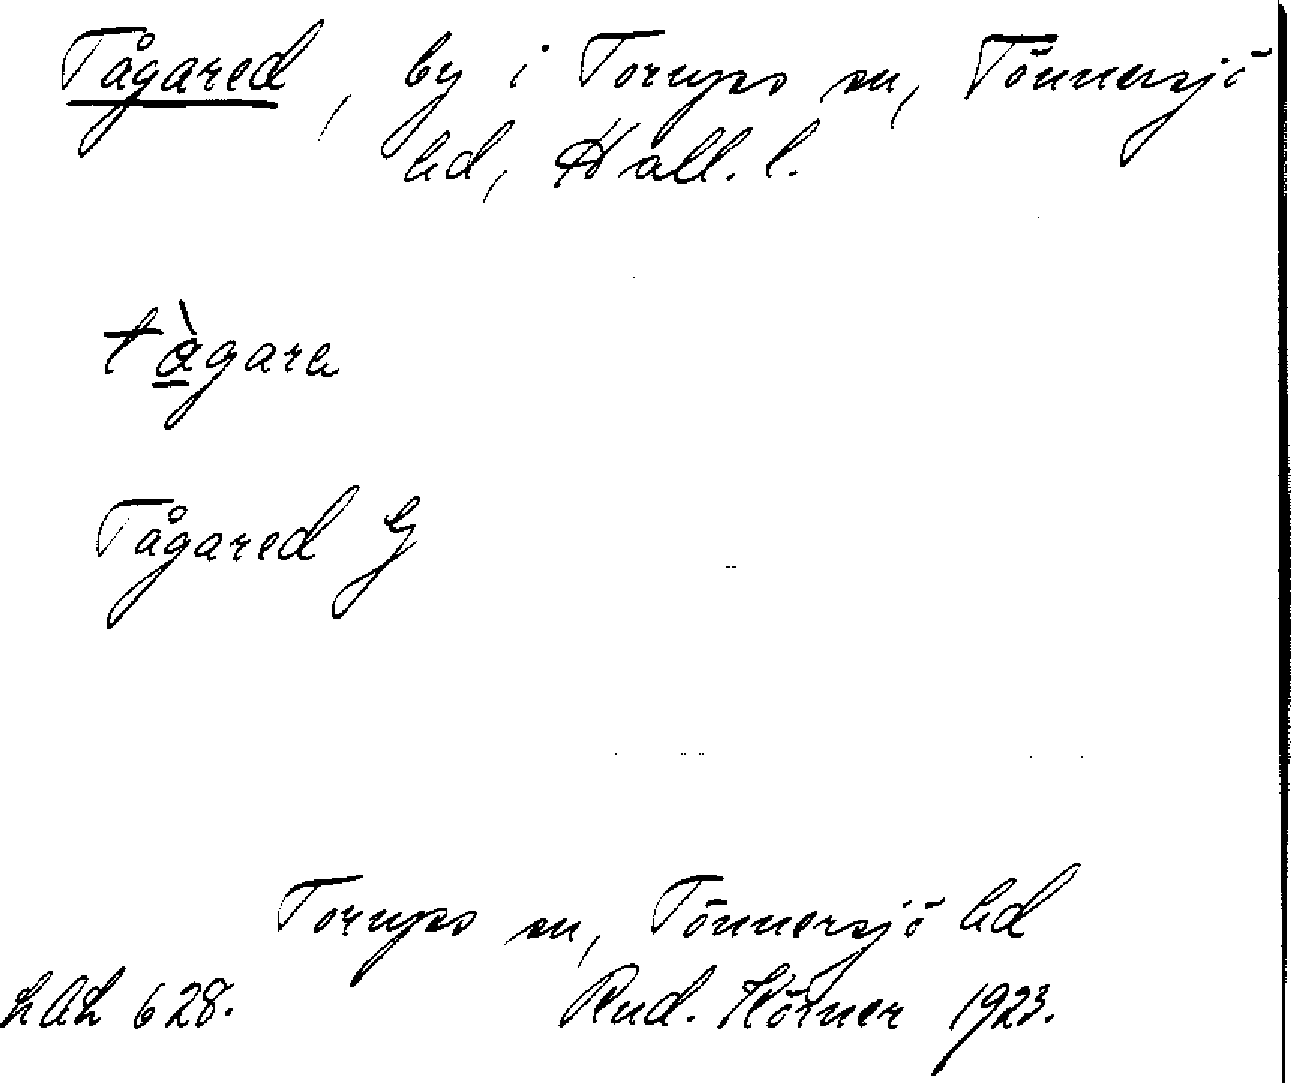 Tågared, by i Torups sn, Tönnersjö
hd, Hall. l.
tågara
Tågared G
Torups sn, Tönnersjö hd
LAL 628.
Rud. Hörner 1923.